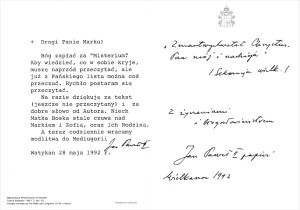 + Drogi Panie Marku!
Bóg zapłać za "Misterium"?
Aby wiedzieć, co w sobie kryje,
muszę naprzód przeczytać, ale
już z Pańskiego listu można coś
przeczuć. Rychło postaram się
przeczytać.
Na razie dziękuję za tekst
(jeszcze nie przeczytany) i za
dobre słowo od Autora. Niech
Matka Boska stale czuwa nad
Markiem i Zofią, oraz Ich Rodziną.
A teraz codziennie wracamy
modlitwą do Medjugorii
Jan Paweł II
Watykan 28 maja 1992 r.
"Zmartwychwstał Chrystus,
Pan mój i nadzieja"
/Sekwencja wielk./
Z życzeniami
i błogosławieństwem
Jan Paweł II papież
Wielkanoc 1992